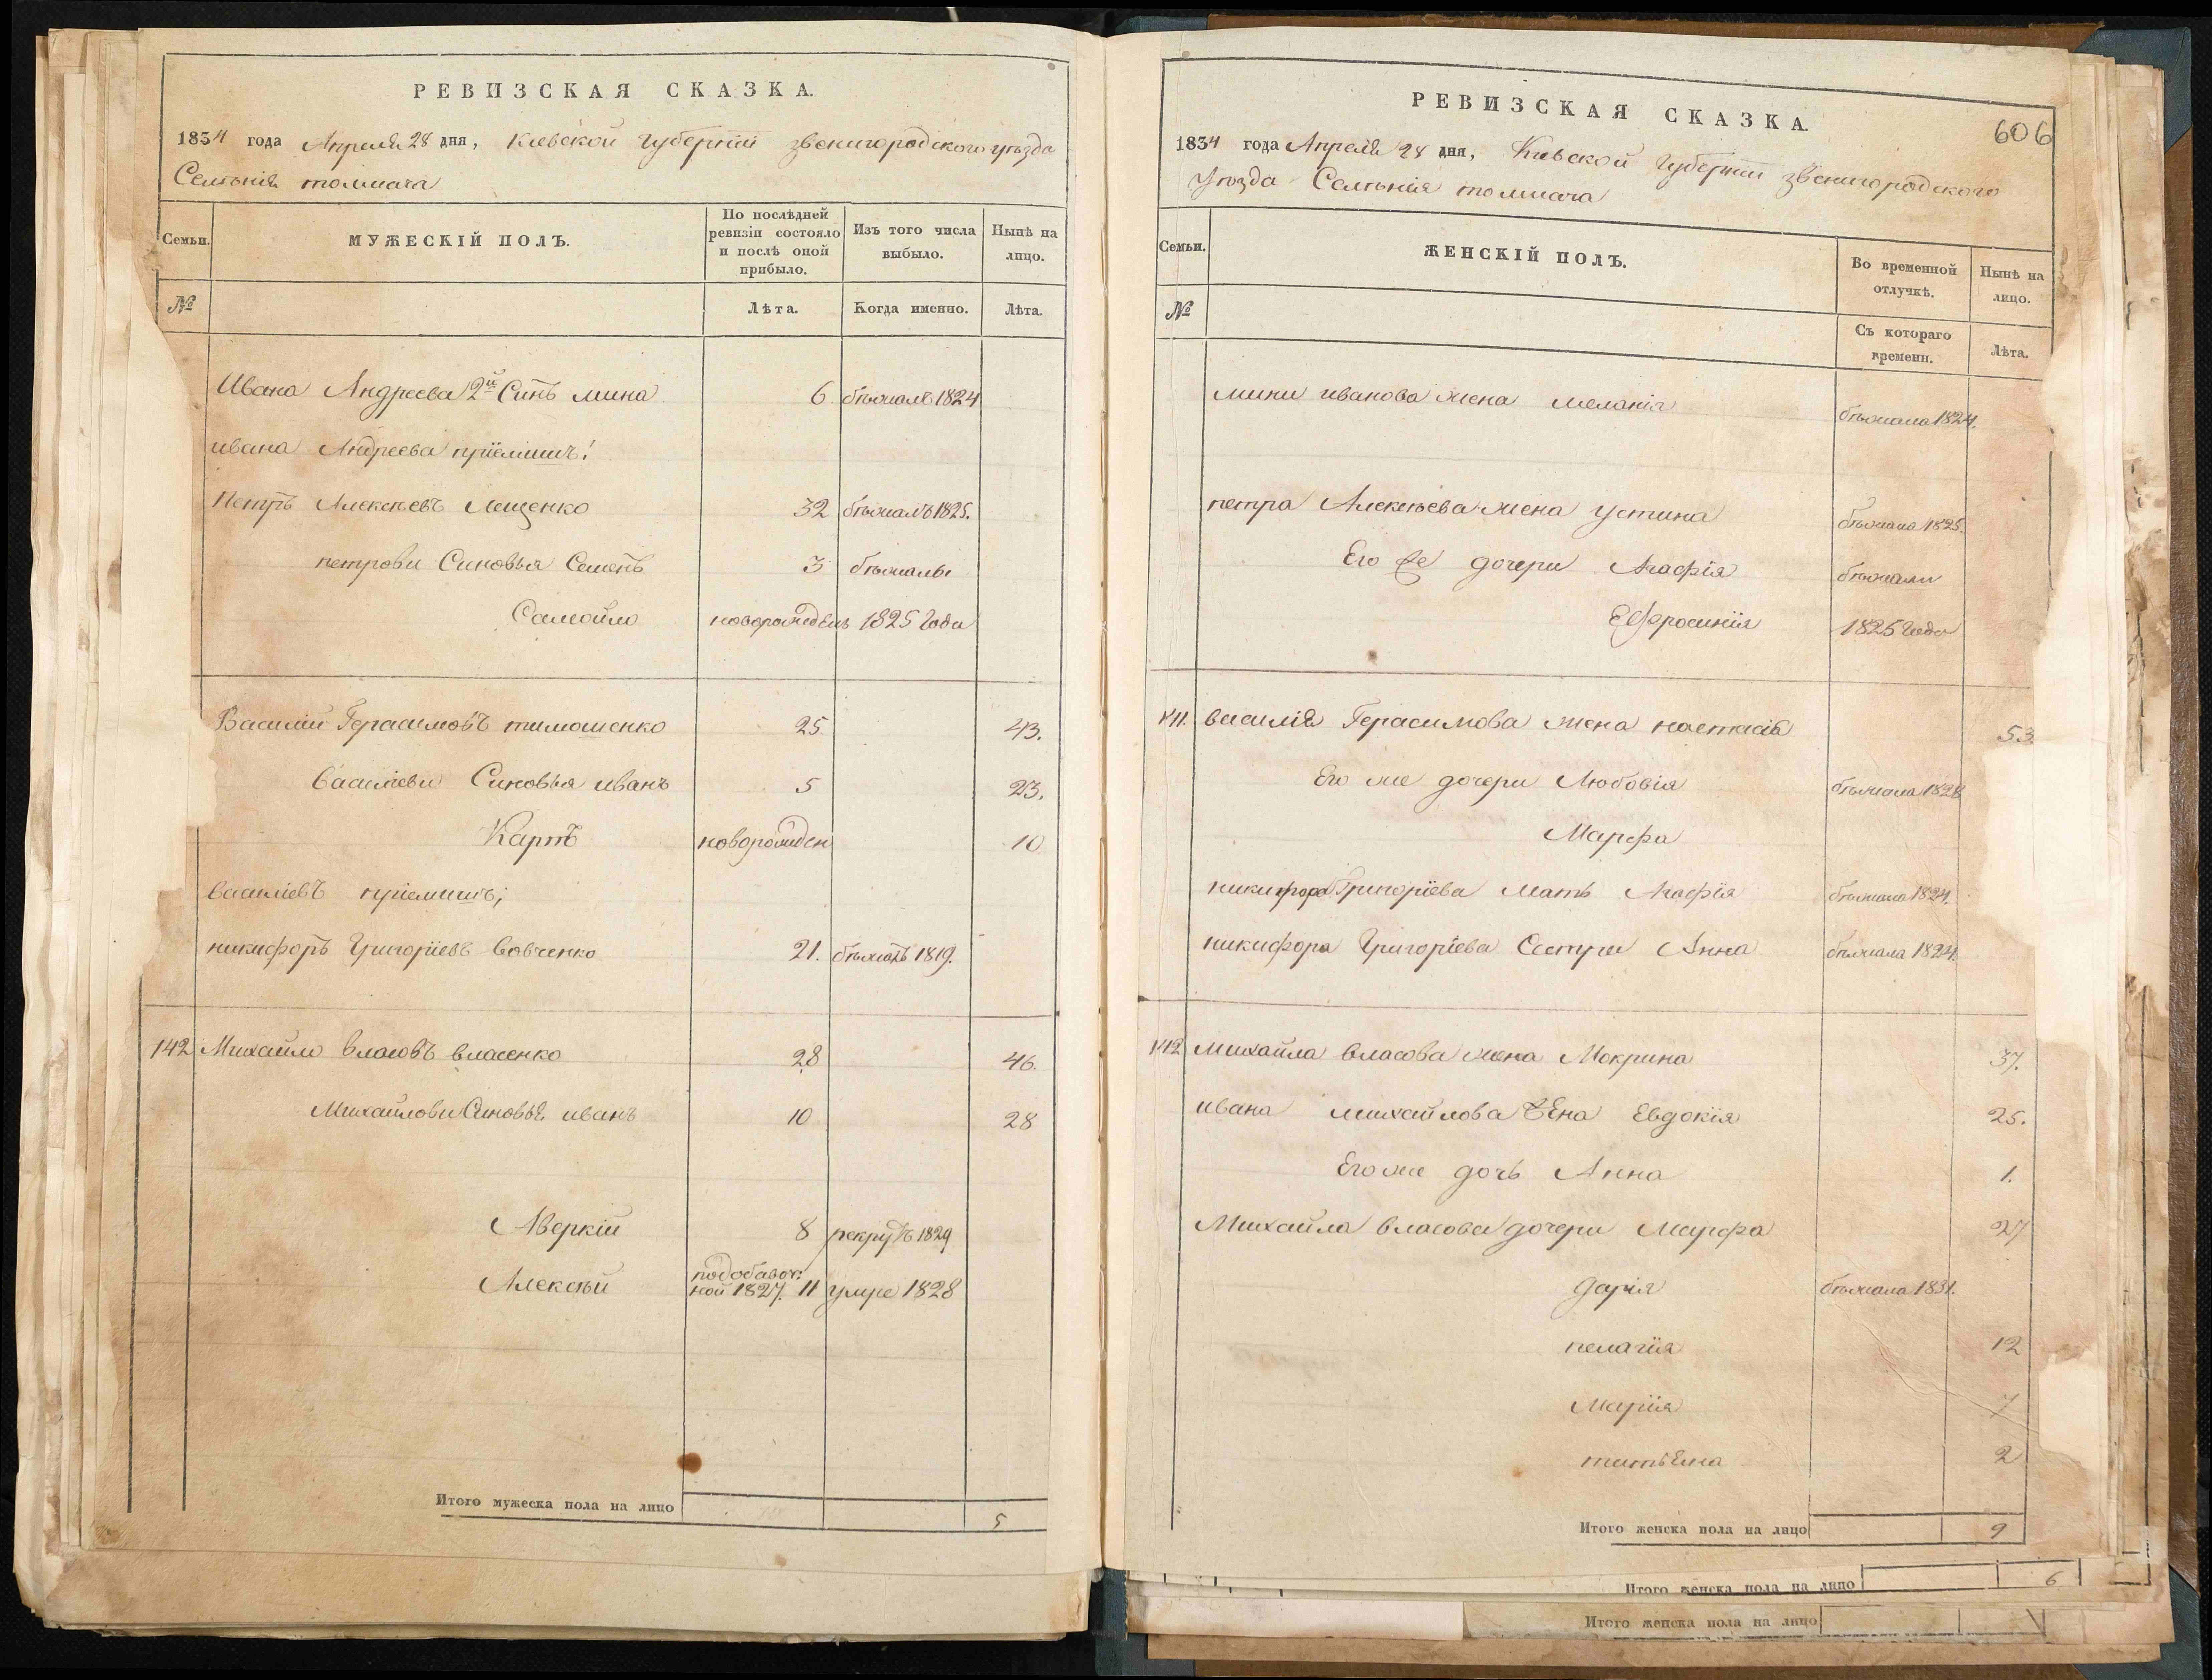 РЕВИЗСКАЯ СКАЗКА.
1834 года Апреля 28 дня, Киевской губернии звенигородского уезда
Селенія толмача
Семьи.
МУЖЕСКІЙ ПОЛЪ.
По послѣдней ревизіи состояло и послѣ оной прибыло.
Изъ того числа выбыло.
Нынѣ на лицо.
№
Лѣта.
Когда именно.
Лѣта.
Ивана Андреева 2й Синъ мина 6 бѣжалъ 1824
ивана Андреева приемишъ!
Петръ Алексѣевъ Лещенко 32 бѣжалъ 1825.
петрови Синовья Семенъ 3 бѣжалы
Самойло новорожденъ 1825 года
Василий Герасимовъ тимошенко 25 43.
Василіеви Синовья иванъ 5 23.
Карпъ новорожден 10
Василіевъ приемишъ;
никифоръ Григоріевъ Вовченко 21. бѣжалъ 1819.
142 Михайло Власовъ власенко 28 46.
Михайлови Синовья иванъ 10 28
Аверкій 8 рекрутъ 1829
Алексѣй подобавочной 1827. 11 умре 1828
Итого мужеска пола на лицо 5
606
РЕВИЗСКАЯ СКАЗКА.
1834 года Апреля 28 дня, Киевской Губернии звенигородского
Уезда Селенія толмача
Семьи.
ЖЕНСКІЙ ПОЛЪ.
Во временной отлучкѣ.
Нынѣ на лицо.
№
Съ котораго времени.
Лѣта.
мини иванова жена меланія бѣжала 1824.
петра Алексѣева жена устина бѣжала 1825.
Его же дочери Агафія бѣжали
Ефросинія 1825 года
141. василія Герасимова жена настасія 53
Его же дочери Любовія бѣжала 1828
Марфа
никифора Григоріева мать Агафія бѣжала 1824.
никифора Григоріева Сестра Анна бѣжала 1824.
142 михайла власова жена Мокрина 37.
ивана михайлова жена Евдокія 25.
Его же дочь Анна 1.
Михайла власова дочери Марфа 27
дарія бѣжала 1831.
пелагія 12
Марія 7
татьяна 2
Итого женска пола на лицо 9
Итого женска пола на лицо 6
Итого женска пола на лицо